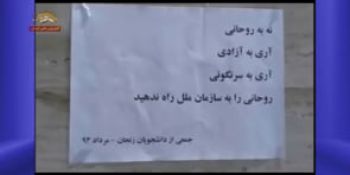 نه به روحانی
آری به آزادی
آری به سرنگونی
روحانی را به سازمان ملل راه ندهید
جمعی از دانشجویان زنجان - مرداد ۹۴